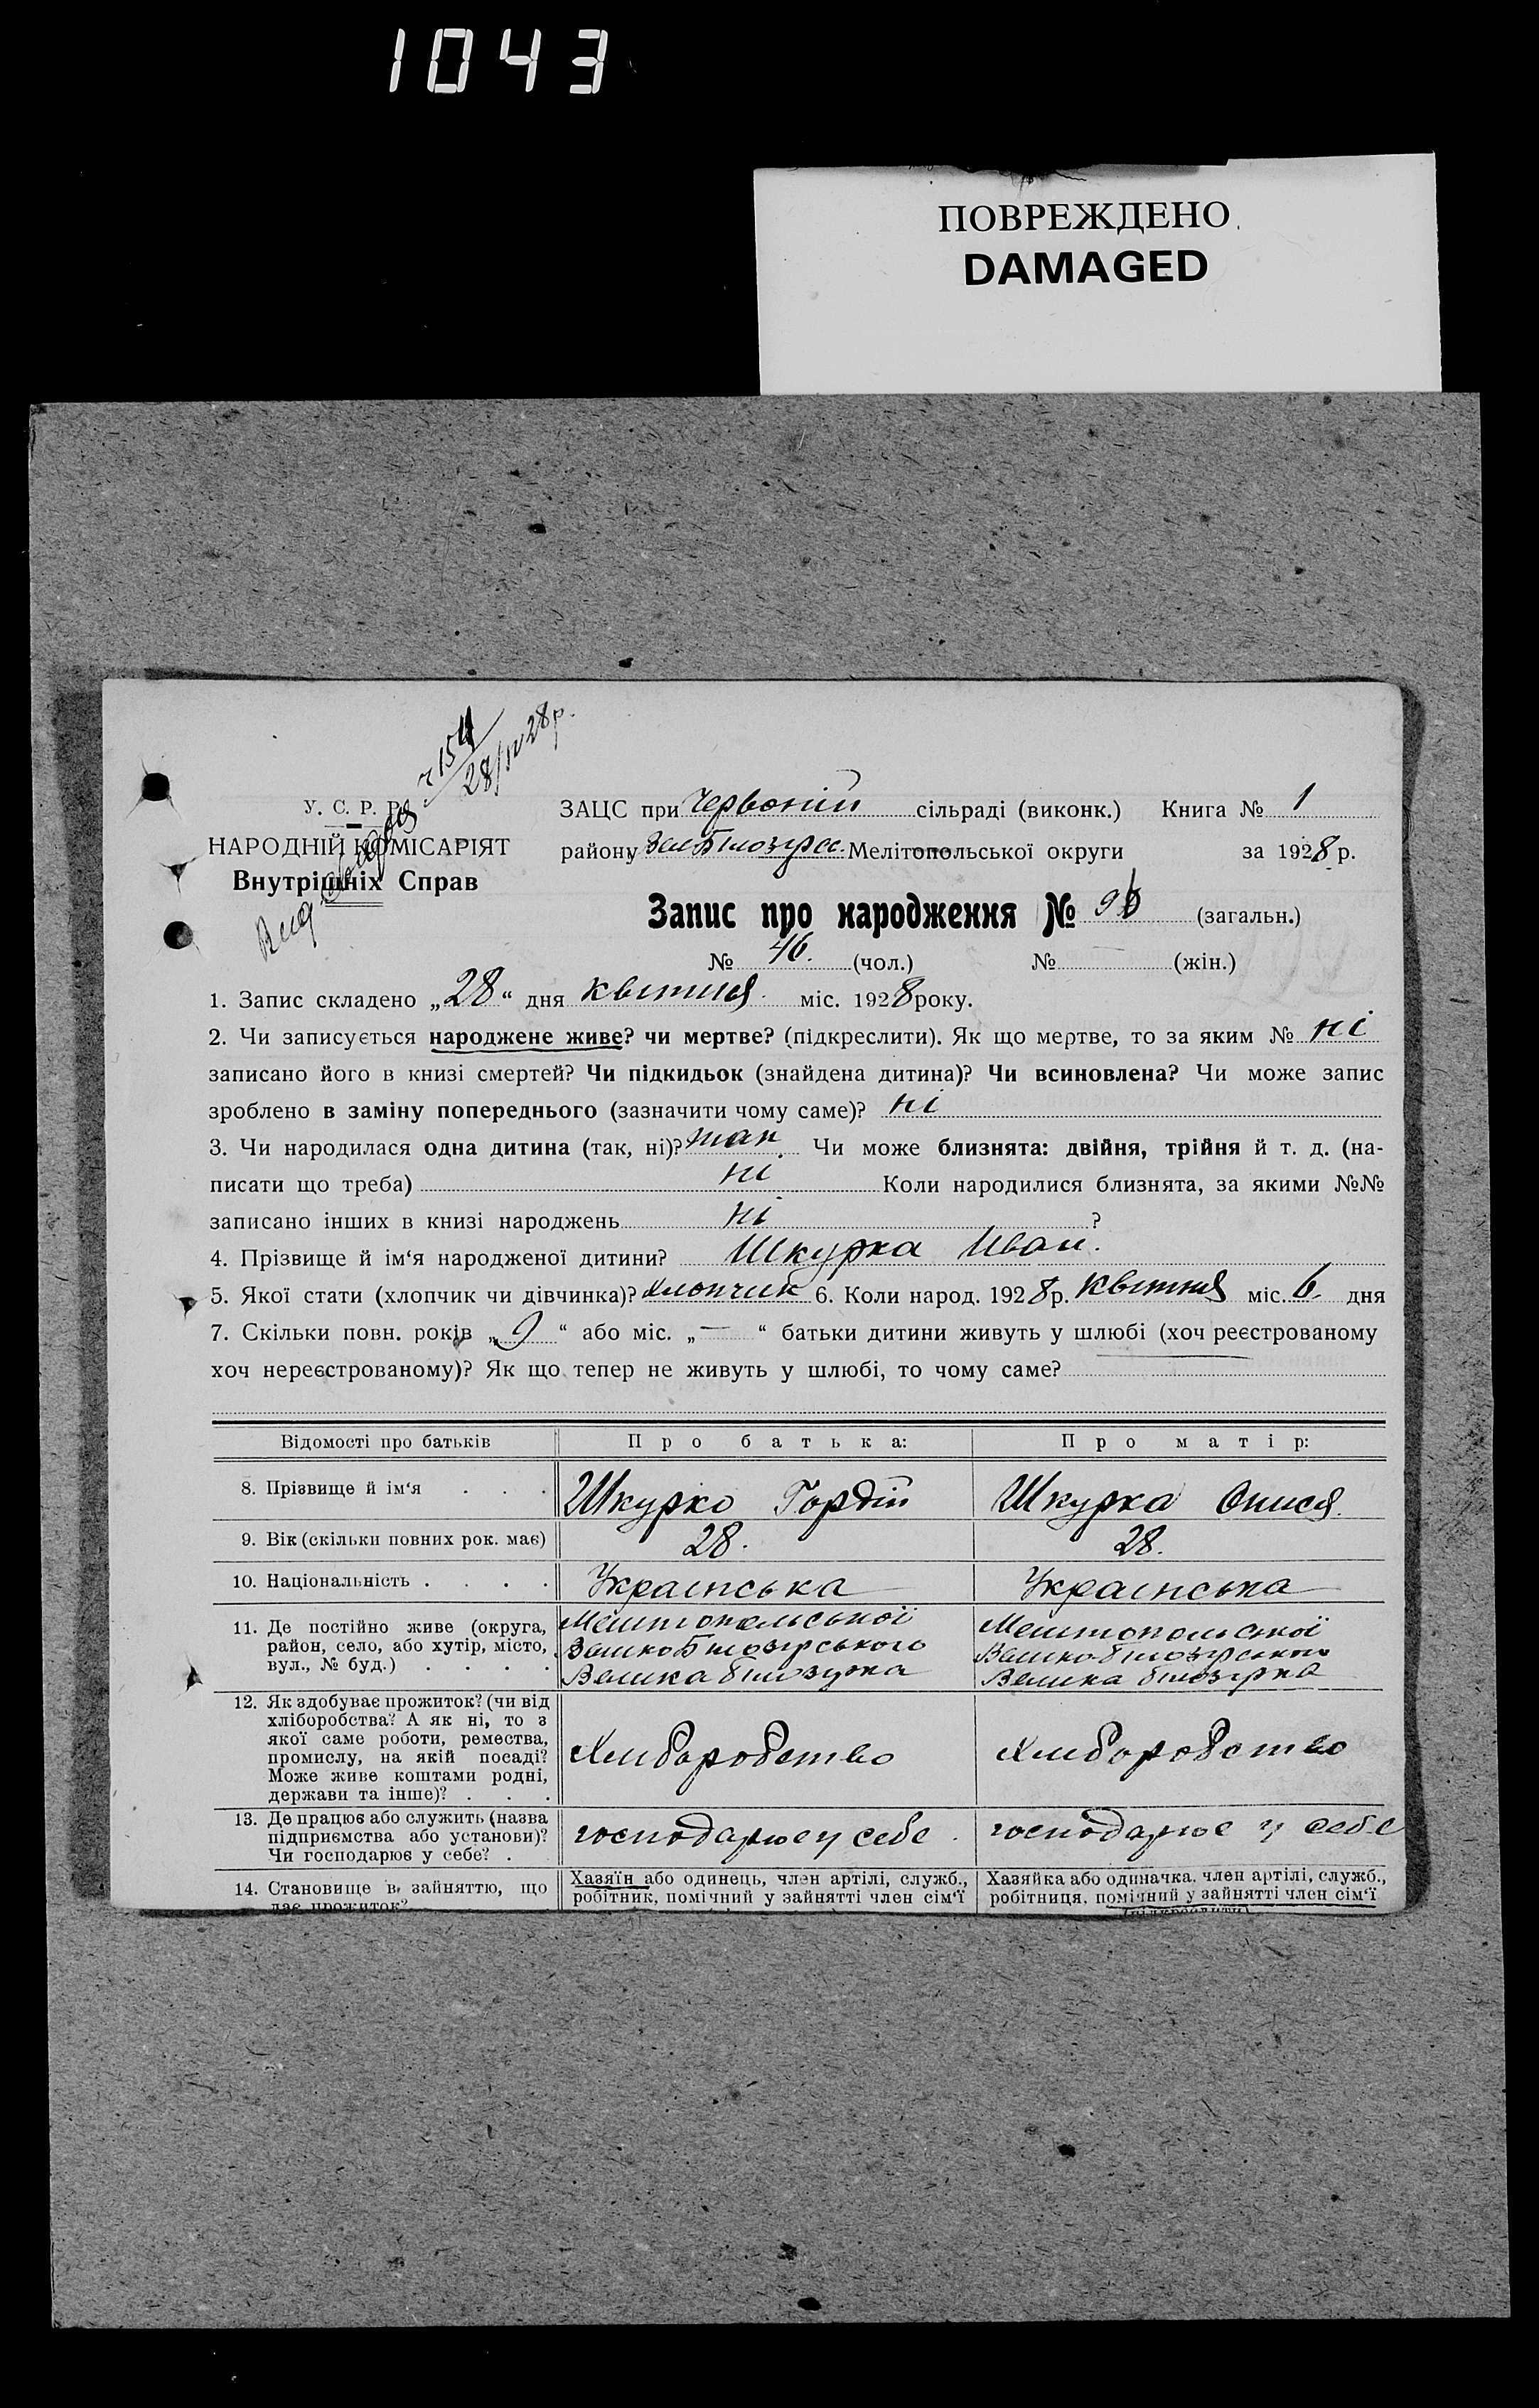 1043
ПОВРЕЖДЕНО
DAMAGED
ч 154
28/IV 28р.
У. С. Р. Р.
НАРОДНІЙ КОМІСАРІЯТ
Внутрішніх Справ
ЗАЦС при Червоній сільраді (виконк.) Книга № 1
району Мелітопольської округи за 1928 р.
Запис про народження № (загальн.)
№ 46. (чол.) № — (жін.)
1. Запис складено „28“ дня квітня міс. 1928 року.
2. Чи записується народжене живе? чи мертве? (підкреслити). Як що мертве, то за яким № ні
записано його в книзі смертей? Чи підкидьок (знайдена дитина)? Чи всиновлена? Чи може запис
зроблено в заміну попереднього (зазначити чому саме)? ні
3. Чи народилася одна дитина (так, ні)? так Чи може близнята: двійня, трійня й т. д. (на-
писати що треба) ні Коли народилися близнята, за якими №№
записано інших в книзі народжень ні ?
4. Прізвище й ім‘я народженої дитини? Шкурка Иван.
5. Якої стати (хлопчик чи дівчинка)? хлопчик 6. Коли народ. 1928 р. квітня міс. 6. дня
7. Скільки повн. років „9“ або міс. „—“ батьки дитини живуть у шлюбі (хоч реєстрованому
хоч нереєстрованому)? Як що тепер не живуть у шлюбі, то чому саме?
Відомості про батьків Про батька: Про матір:
8. Прізвище й ім‘я . . . Шкурко Гордій Шкурка Онися.
9. Вік (скільки повних рок. має) 28. 28.
10. Національність . . . . Українська Українська
11. Де постійно живе (округа, Мелітопольської Мелітопольської
район, село, або хутір, місто, Велико Білозірського Великобілозірського
вул., № буд.) . . . . Велика білозірка Велика білозірка
12. Як здобуває прожиток? (чи від
хліборобства? А як ні, то з
якої саме роботи, ремества,
промислу, на якій посаді? Хліборобство Хліборобство
Може живе коштами родні,
держави та інше)? . . .
13. Де працює або служить (назва
підприємства або установи)? господарює у себе господарює у себе
Чи господарює у себе? .
14. Становище в зайняттю, що Хазяїн або одинець, член артілі, служб., Хазяйка або одиначка, член артілі, служб.,
дає прожиток? робітник, помічний у зайнятті член сім‘ї робітниця, помічний у зайнятті член сім‘ї
(підкреслити)